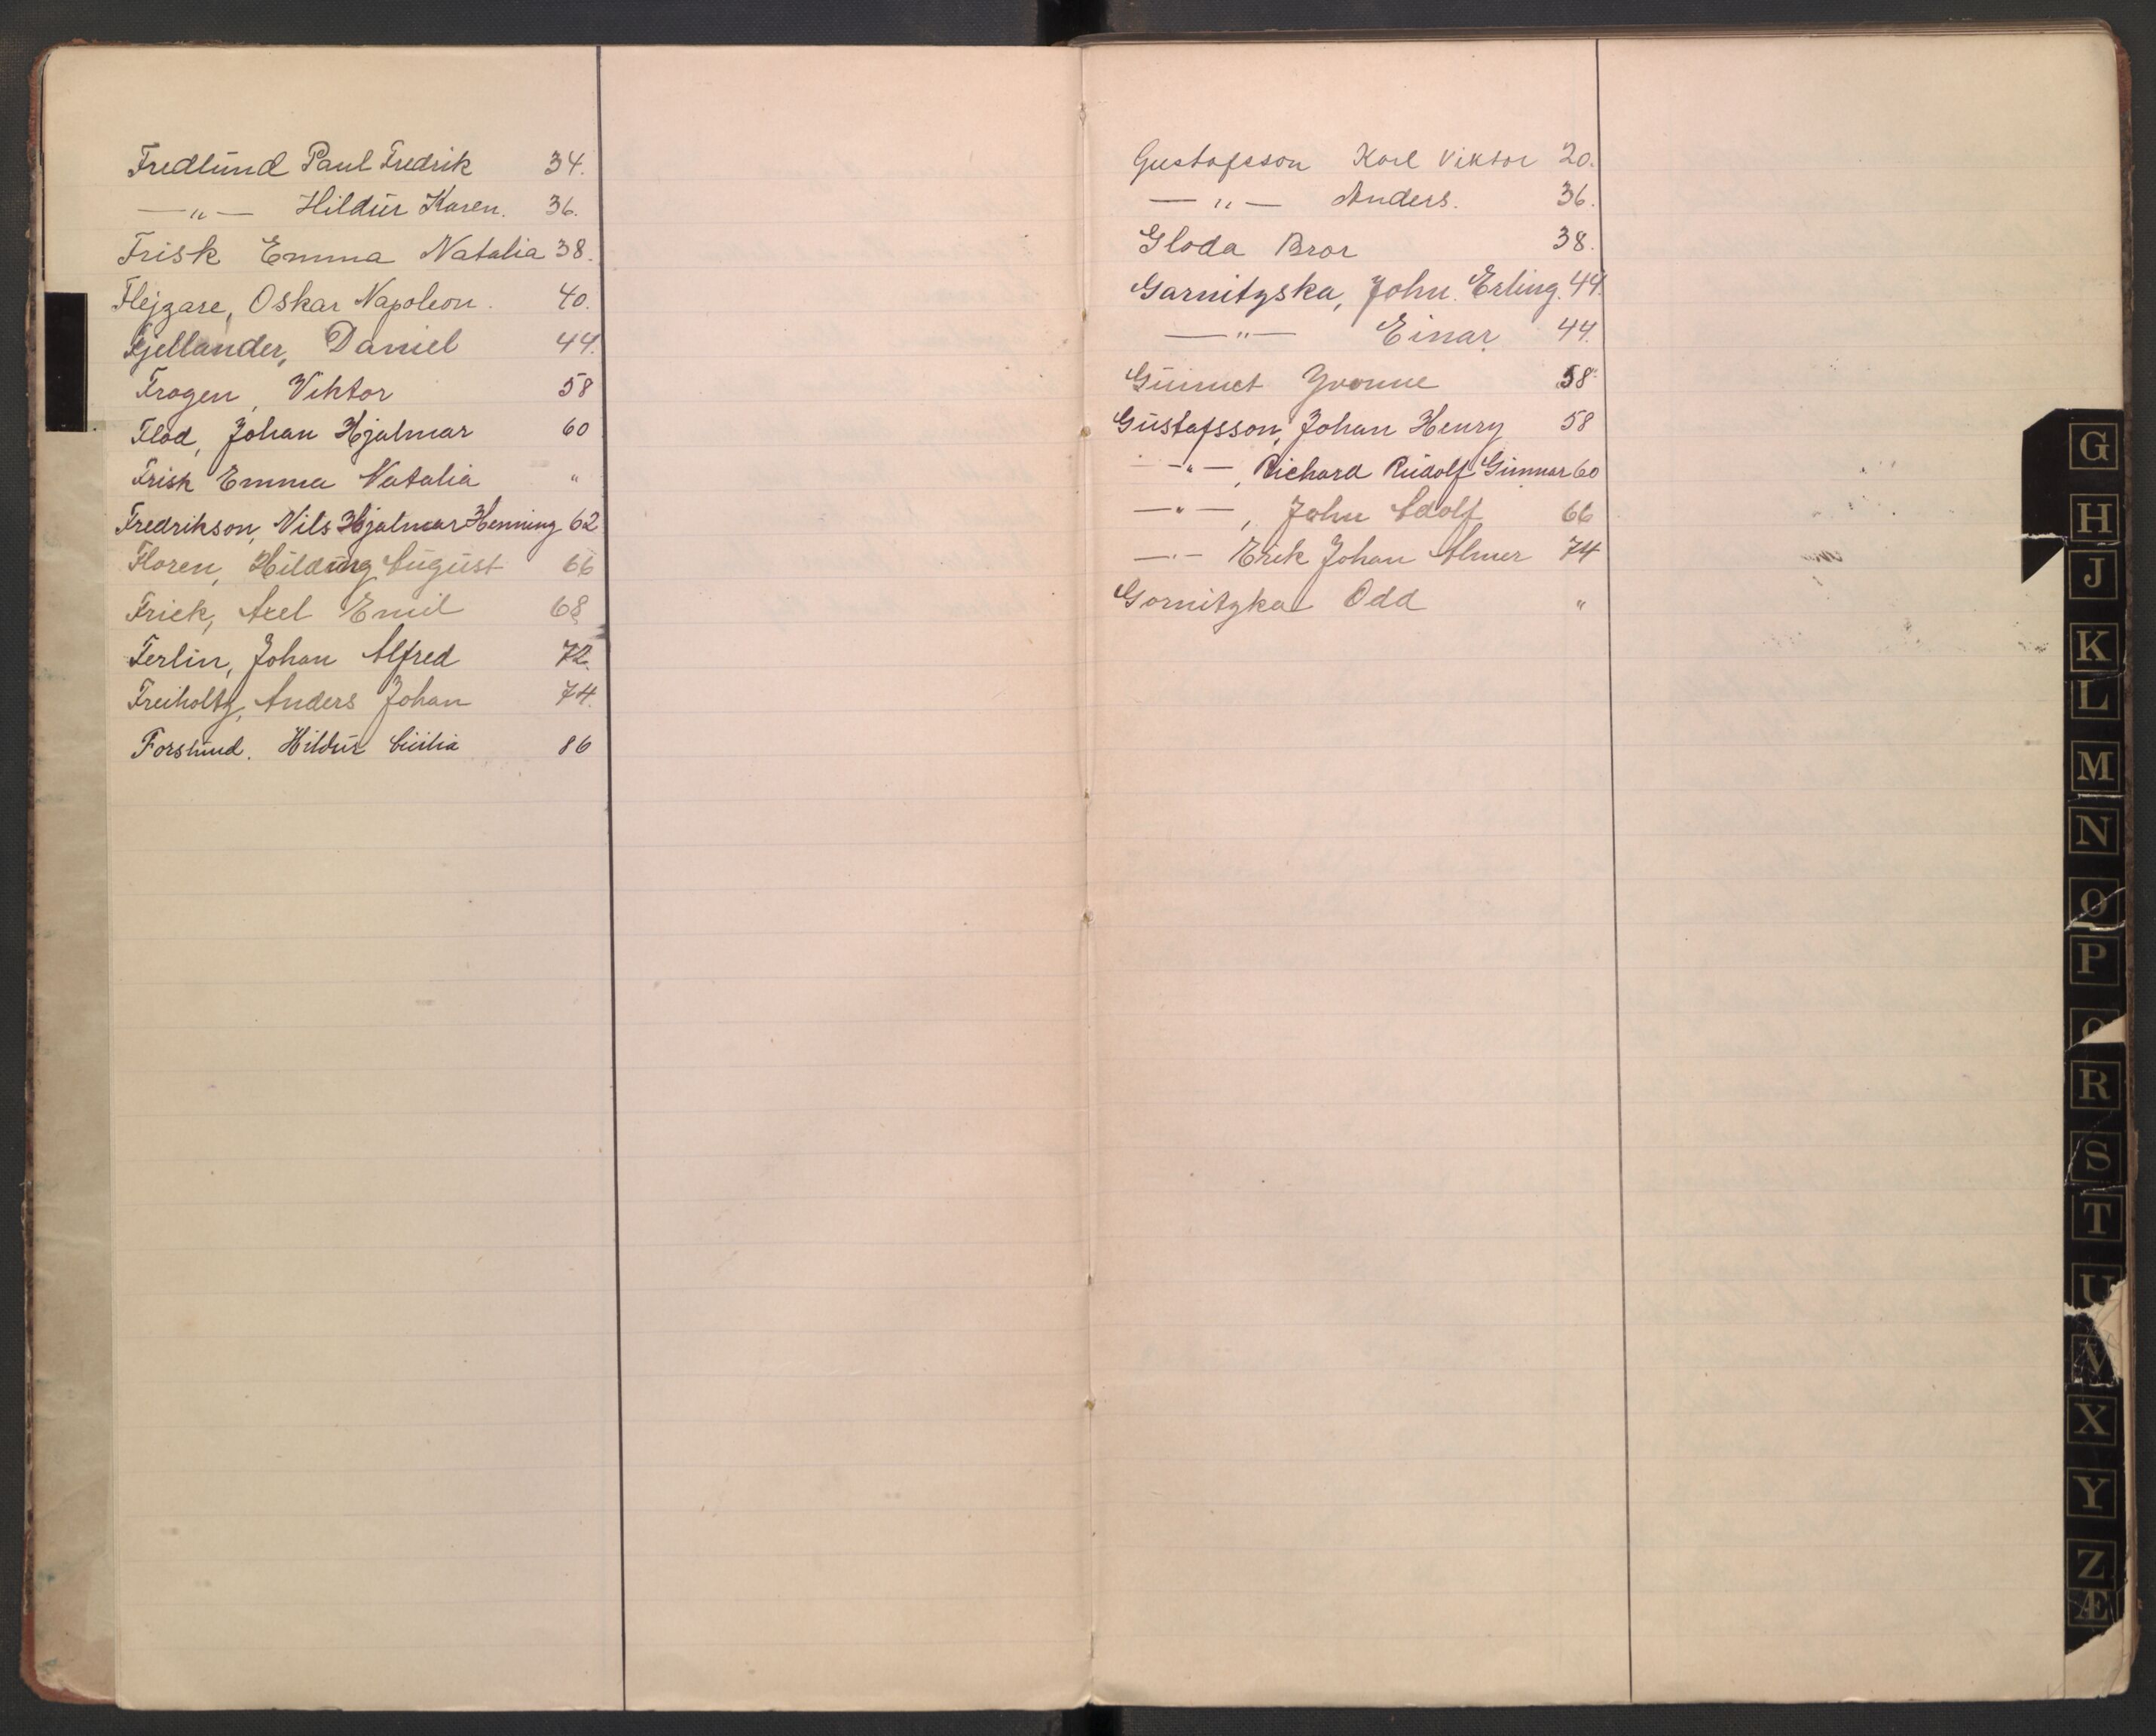 Fredlund Paul Fredrik 34.
—„— Hildur Karen. 36.
Frisk Emma Natalia 38.
Flejzare, Oskar Napoleon. 40.
Fjellander, Daniel 44.
Frogen, Viktor 58
Flod, Johan Hjalmar 60
Frisk Emma Natalia „
Fredrikson, Nils Hjalmar Henning 62
Floren, Hilding August 66
Frick, Axel Emil 68
Ferlin, Johan Alfred 72.
Freiholtz, Anders Johan 74.
Forslund. Hildur Cicilia 86
Gustafsson Karl Viktor 20.
—„— Anders. 36.
Gloda Bror 38.
Garnitzska, John Erling. 44.
—„— Einar 44.
Gunnet Yvonne 58
Gustafsson, Johan Henry 58
—„—, Richard Rudolf Gunnar 60
—„—, John Adolf 66
—„— Erik Johan Almer 74
Gornitzka Odd „
G
H
J
K
L
M
N
O
P
Q
R
S
T
U
V
X
Y
Z
Æ